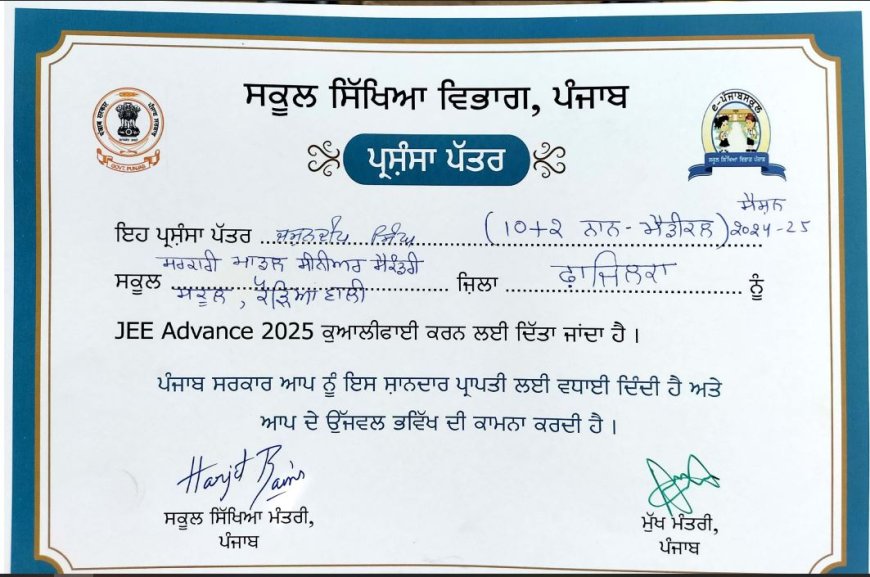 ਸਕੂਲ ਸਿੱਖਿਆ ਵਿਭਾਗ, ਪੰਜਾਬ
ਪ੍ਰਸ਼ੰਸਾ ਪੱਤਰ
GOVT PUNJAB
ੲ-ਪੰਜਾਬਸਕੂਲ
ਸਕੂਲ ਸਿੱਖਿਆ ਵਿਭਾਗ ਪੰਜਾਬ
ਸੈਸ਼ਨ
ਇਹ ਪ੍ਰਸ਼ੰਸਾ ਪੱਤਰ ਜਸ਼ਨਦੀਪ ਸਿੰਘ (10+2 ਨਾਨ-ਮੈਡੀਕਲ) 2024-25
ਸਰਕਾਰੀ ਮਾਡਲ ਸੀਨੀਅਰ ਸੈਕੰਡਰੀ
ਸਕੂਲ ਸਕੂਲ, ਜ਼ਿਲਾ ਫ਼ਾਜਿਲਕਾ ਨੂੰ
JEE Advance 2025 ਕੁਆਲੀਫਾਈ ਕਰਨ ਲਈ ਦਿੱਤਾ ਜਾਂਦਾ ਹੈ।
ਪੰਜਾਬ ਸਰਕਾਰ ਆਪ ਨੂੰ ਇਸ ਸ਼ਾਨਦਾਰ ਪ੍ਰਾਪਤੀ ਲਈ ਵਧਾਈ ਦਿੰਦੀ ਹੈ ਅਤੇ
ਆਪ ਦੇ ਉੱਜਵਲ ਭਵਿੱਖ ਦੀ ਕਾਮਨਾ ਕਰਦੀ ਹੈ।
Harjot Bains
ਸਕੂਲ ਸਿੱਖਿਆ ਮੰਤਰੀ,
ਪੰਜਾਬ
ਮੁੱਖ ਮੰਤਰੀ,
ਪੰਜਾਬ